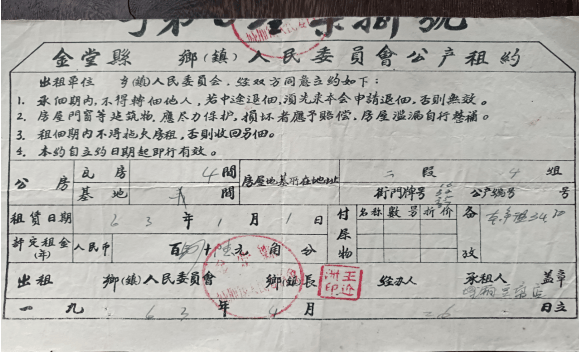 金堂縣 鄉(鎮)人民委員會公产租約
出租单位 乡(鎮)人民委員会，經双方同意立約如下：
1. 承佃期内，不得轉佃他人，若中途退佃，須先來本会申請退佃，否則無效。
2. 房屋門窗等建筑物，應尽力保护，損坏者應予賠償，房屋滥漏自行整補。
3. 租佃期内不得拖欠房租，否則收回另佃。
4. 本約自立約日期起即行有效。
公房 瓦房 4間 房屋地基所在地址 二段 4組
基地 間 街門牌号 公产編号 号
租賃日期 63年1月1日 付屋物 名称 數 另 折价 备攷
評定租金(年) 人民币 百 十 元 角 分
出租 鄉(鎮)人民委員會 鄉(鎮)長 王洲迎印 經办人 承租人 盖章
一九63年4月26日立